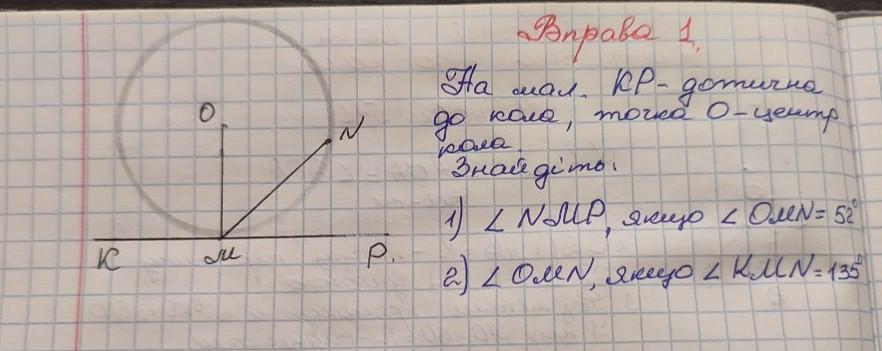 Вправа 1.
На мал. КР - дотична
до кола, точка О - центр
кола.
Знайдіть:
1) ∠ NMP, якщо ∠ OMN = 52°
2) ∠ OMN, якщо ∠ KMN = 135°
O
N
K
M
P.